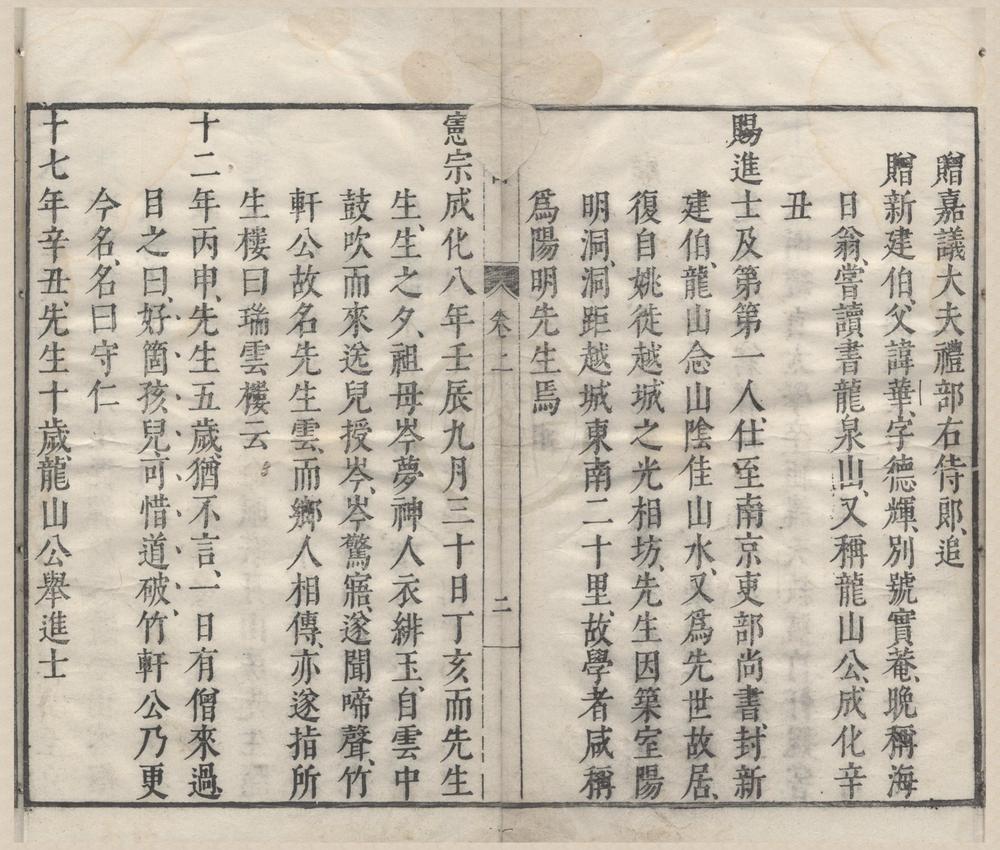 贈嘉議大夫禮部右侍郎、追
贈新建伯、父諱華、字德輝、別號實菴、晚稱海
日翁、嘗讀書龍泉山、又稱龍山公、成化辛
丑
賜進士及第第一人、仕至南京吏部尚書、封新
建伯、龍山念山陰佳山水、又爲先世故居、
復自姚徙越城之光相坊、先生因築室陽
明洞、洞距越城東南二十里、故學者咸稱
爲陽明先生焉
卷上
二
憲宗成化八年壬辰九月三十日丁亥而先生
生、生之夕、祖母岑夢神人衣緋玉、自雲中
鼓吹而來送兒授岑、岑驚寤、遂聞啼聲、竹
軒公故名先生雲、而鄉人相傳、亦遂指所
生樓曰瑞雲樓云
十二年丙申、先生五歲、猶不言、一日有僧來過
目之曰、好箇孩兒、可惜道破、竹軒公乃更
今名、名曰守仁
十七年辛丑、先生十歲、龍山公舉進士